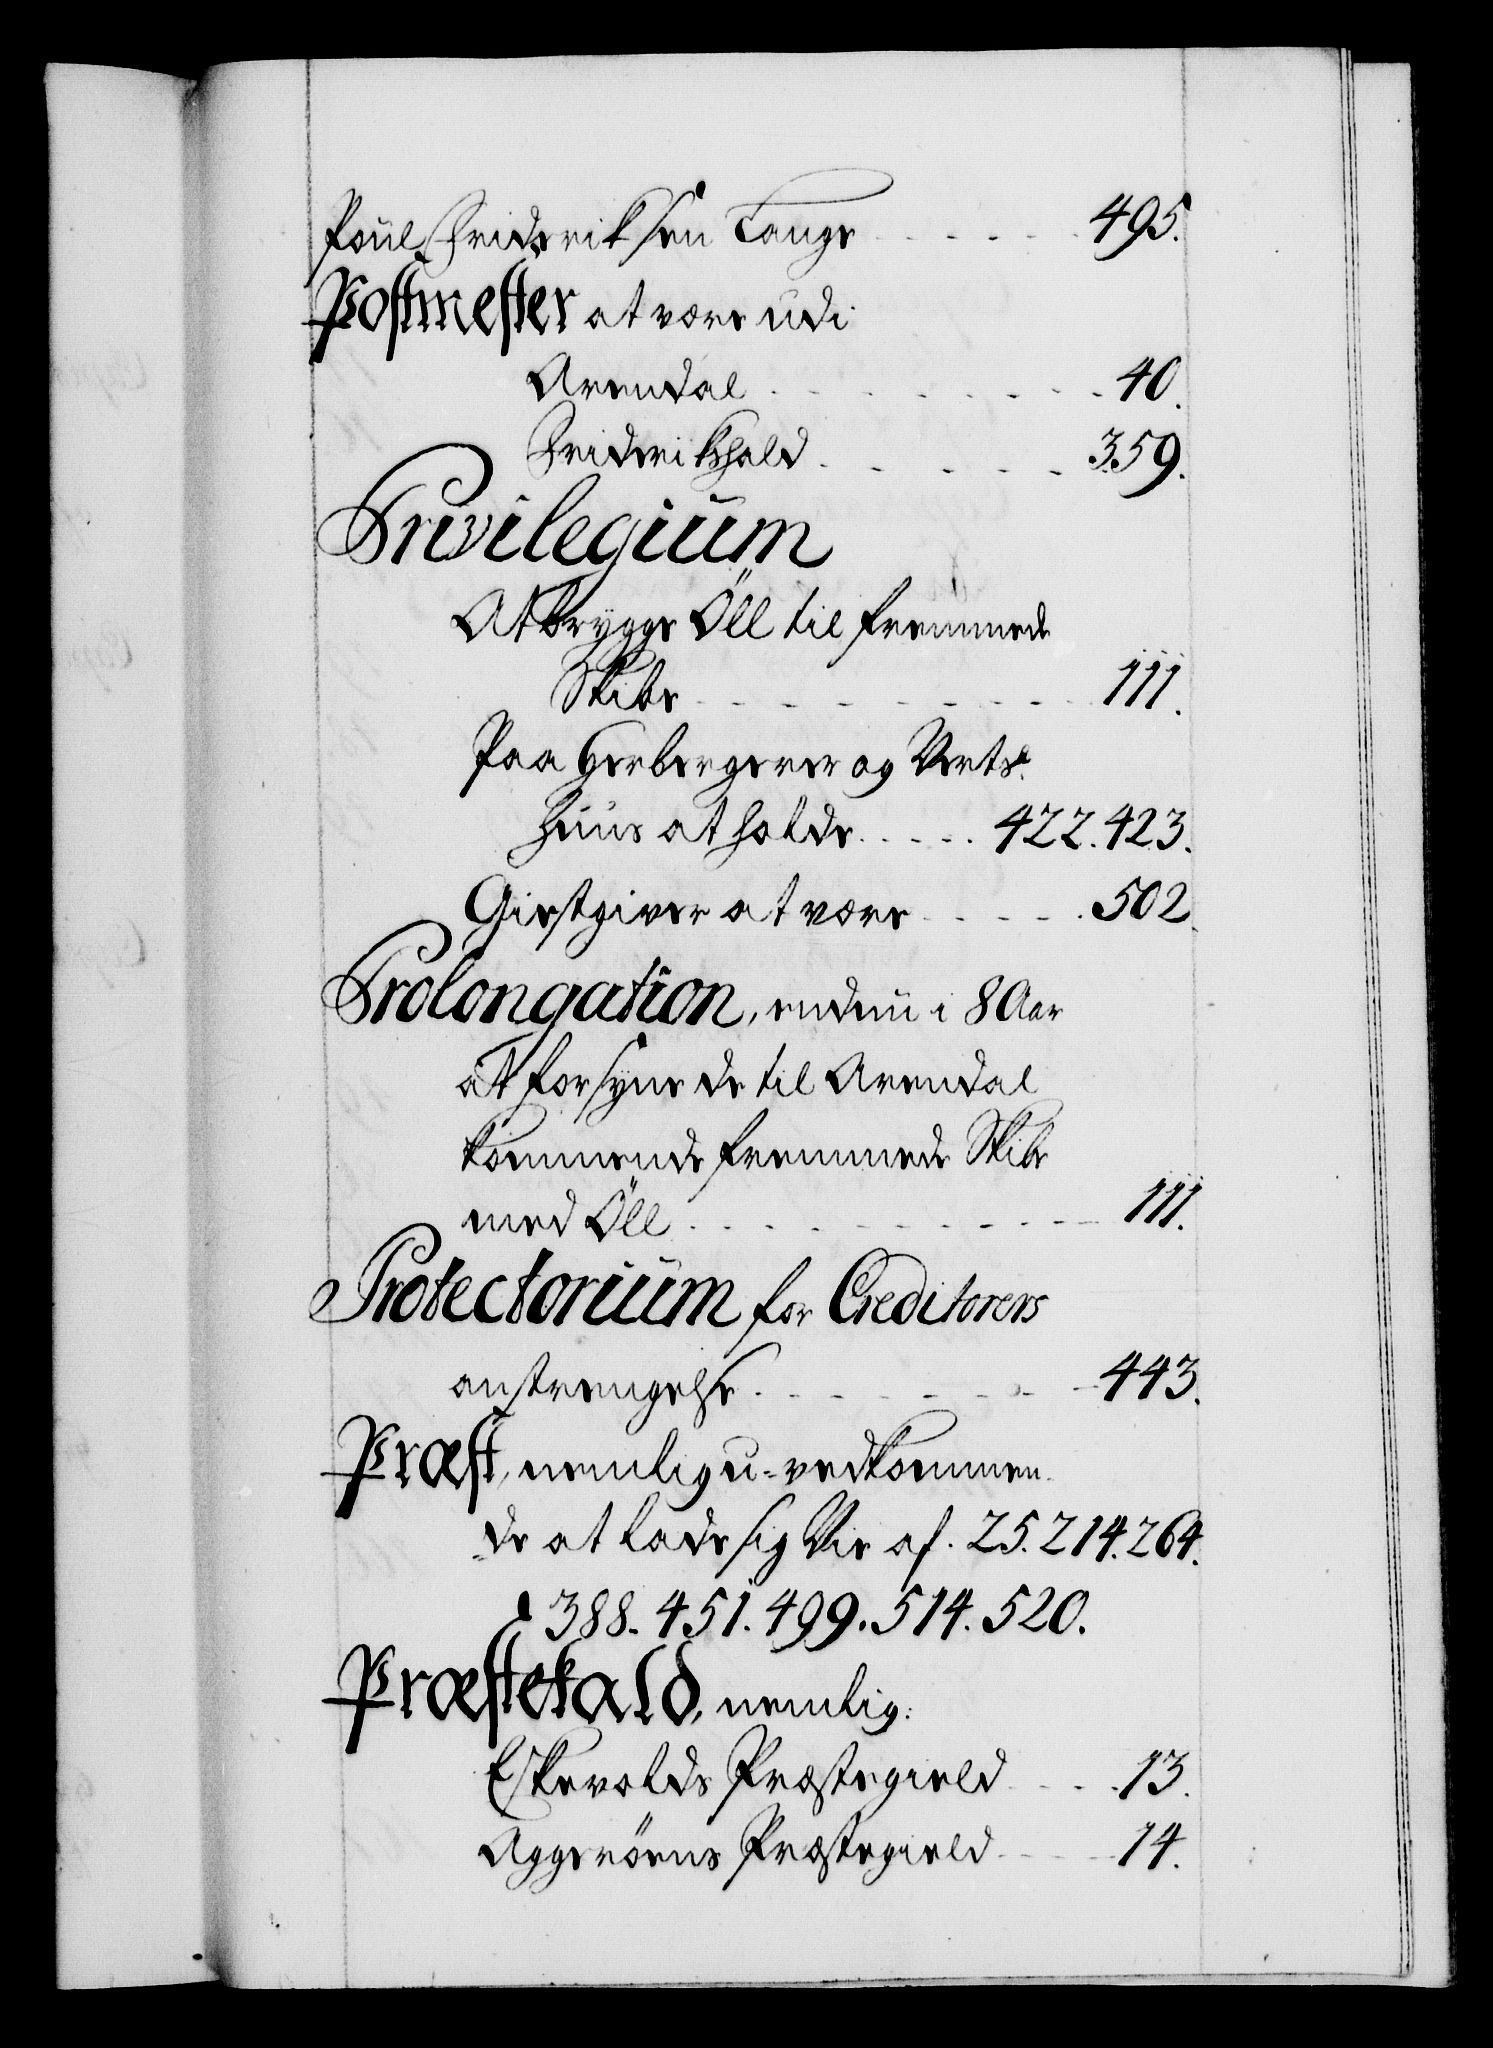 Poul Frideriksen Lange - - - - - 495.
Postmester at være udi
Arendal - - - - - - - 40.
Friderikshald - - - - - 359.
Privilegium
At brygge Öll til fremmede
Skibe - - - - - - - - 111.
Paa Herbergerer og Verts-
huus at holde - - - - 422. 423.
Giestgiver at være - - - - 502.
Prolongation, endnu i 8 Aar
at forsyne de til Arendal
kommende fremmede Skibe
med Öll - - - - - - - - 111.
Protectorium for Creditorers
anstrengelse - - - - - - - 443.
Præst, nemlig u-vedkommen-
de at lade sig Vie af. 25. 214. 264.
388. 451. 499. 514. 520.
Præstekald, nemlig:
Eskevolds Præstegield - - - 13.
Aggeröens Præstegield - - - 14.